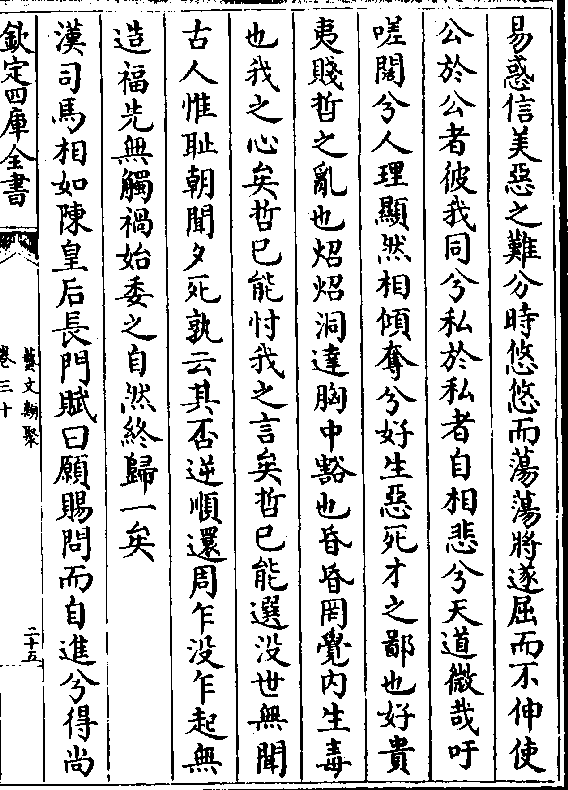 易惑信美惡之難分時悠悠而蕩蕩將遂屈而不伸使
公於公者彼我同兮私於私者自相悲兮天道微哉吁
嗟闊兮人理顯然相傾奪兮好生惡死才之鄙也好貴
夷賤哲之亂也炤炤洞達胸中豁也昏昏罔覺內生毒
也我之心矣哲已能忖我之言矣哲已能選沒世無聞
古人惟耻朝聞夕死孰云其否逆順還周乍没乍起無
造福先無觸禍始委之自然終歸一矣
漢司馬相如陳皇后長門賦曰願賜問而自進兮得尚
欽定四庫全書
藝文類聚
卷三十
二十五